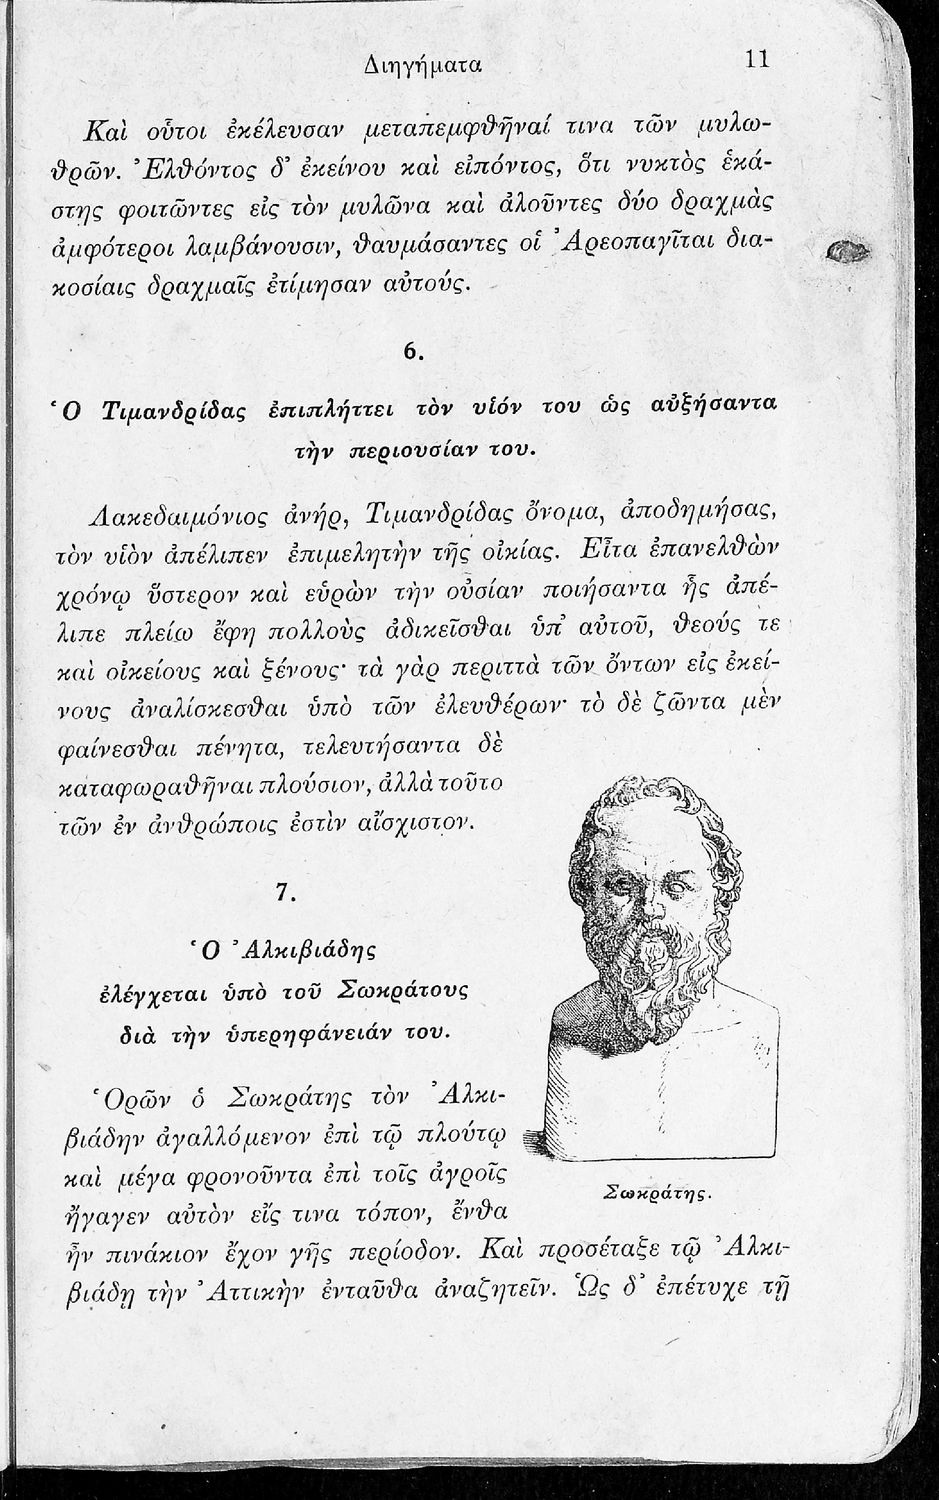 Διηγήματα 11
Καὶ οὗτοι ἐκέλευσαν μεταπεμφθῆναί τινα τῶν μυλω-
θρῶν. Ἐλθόντος δ' ἐκείνου καὶ εἰπόντος, ὅτι νυκτὸς ἑκά-
στης φοιτῶντες εἰς τὸν μυλῶνα καὶ ἀλοῦντες δύο δραχμὰς
ἀμφότεροι λαμβάνουσιν, θαυμάσαντες οἱ Ἀρεοπαγῖται δια-
κοσίαις δραχμαῖς ἐτίμησαν αὐτούς.
6.
Ὁ Τιμανδρίδας ἐπιπλήττει τὸν υἱόν του ὡς αὐξήσαντα
τὴν περιουσίαν του.
Λακεδαιμόνιος ἀνήρ, Τιμανδρίδας ὄνομα, ἀποδημήσας,
τὸν υἱὸν ἀπέλιπεν ἐπιμελητὴν τῆς οἰκίας. Εἶτα ἐπανελθὼν
χρόνῳ ὕστερον καὶ εὑρὼν τὴν οὐσίαν ποιήσαντα ἧς ἀπέ-
λιπε πλείω ἔφη πολλοὺς ἀδικεῖσθαι ὑπ' αὐτοῦ, θεούς τε
καὶ οἰκείους καὶ ξένους· τὰ γὰρ περιττὰ τῶν ὄντων εἰς ἐκεί-
νους ἀναλίσκεσθαι ὑπὸ τῶν ἐλευθέρων· τὸ δὲ ζῶντα μὲν
φαίνεσθαι πένητα, τελευτήσαντα δὲ
καταφωραθῆναι πλούσιον, ἀλλὰ τοῦτο
τῶν ἐν ἀνθρώποις ἐστὶν αἴσχιστον.
7.
Ὁ Ἀλκιβιάδης
ἐλέγχεται ὑπὸ τοῦ Σωκράτους
διὰ τὴν ὑπερηφάνειάν του.
Ὁρῶν ὁ Σωκράτης τὸν Ἀλκι-
βιάδην ἀγαλλόμενον ἐπὶ τῷ πλούτῳ
καὶ μέγα φρονοῦντα ἐπὶ τοῖς ἀγροῖς
ἤγαγεν αὐτὸν εἴς τινα τόπον, ἔνθα
ἦν πινάκιον ἔχον γῆς περίοδον. Καὶ προσέταξε τῷ Ἀλκι-
βιάδῃ τὴν Ἀττικὴν ἐνταῦθα ἀναζητεῖν. Ὡς δ' ἐπέτυχε τῇ
Σωκράτης.